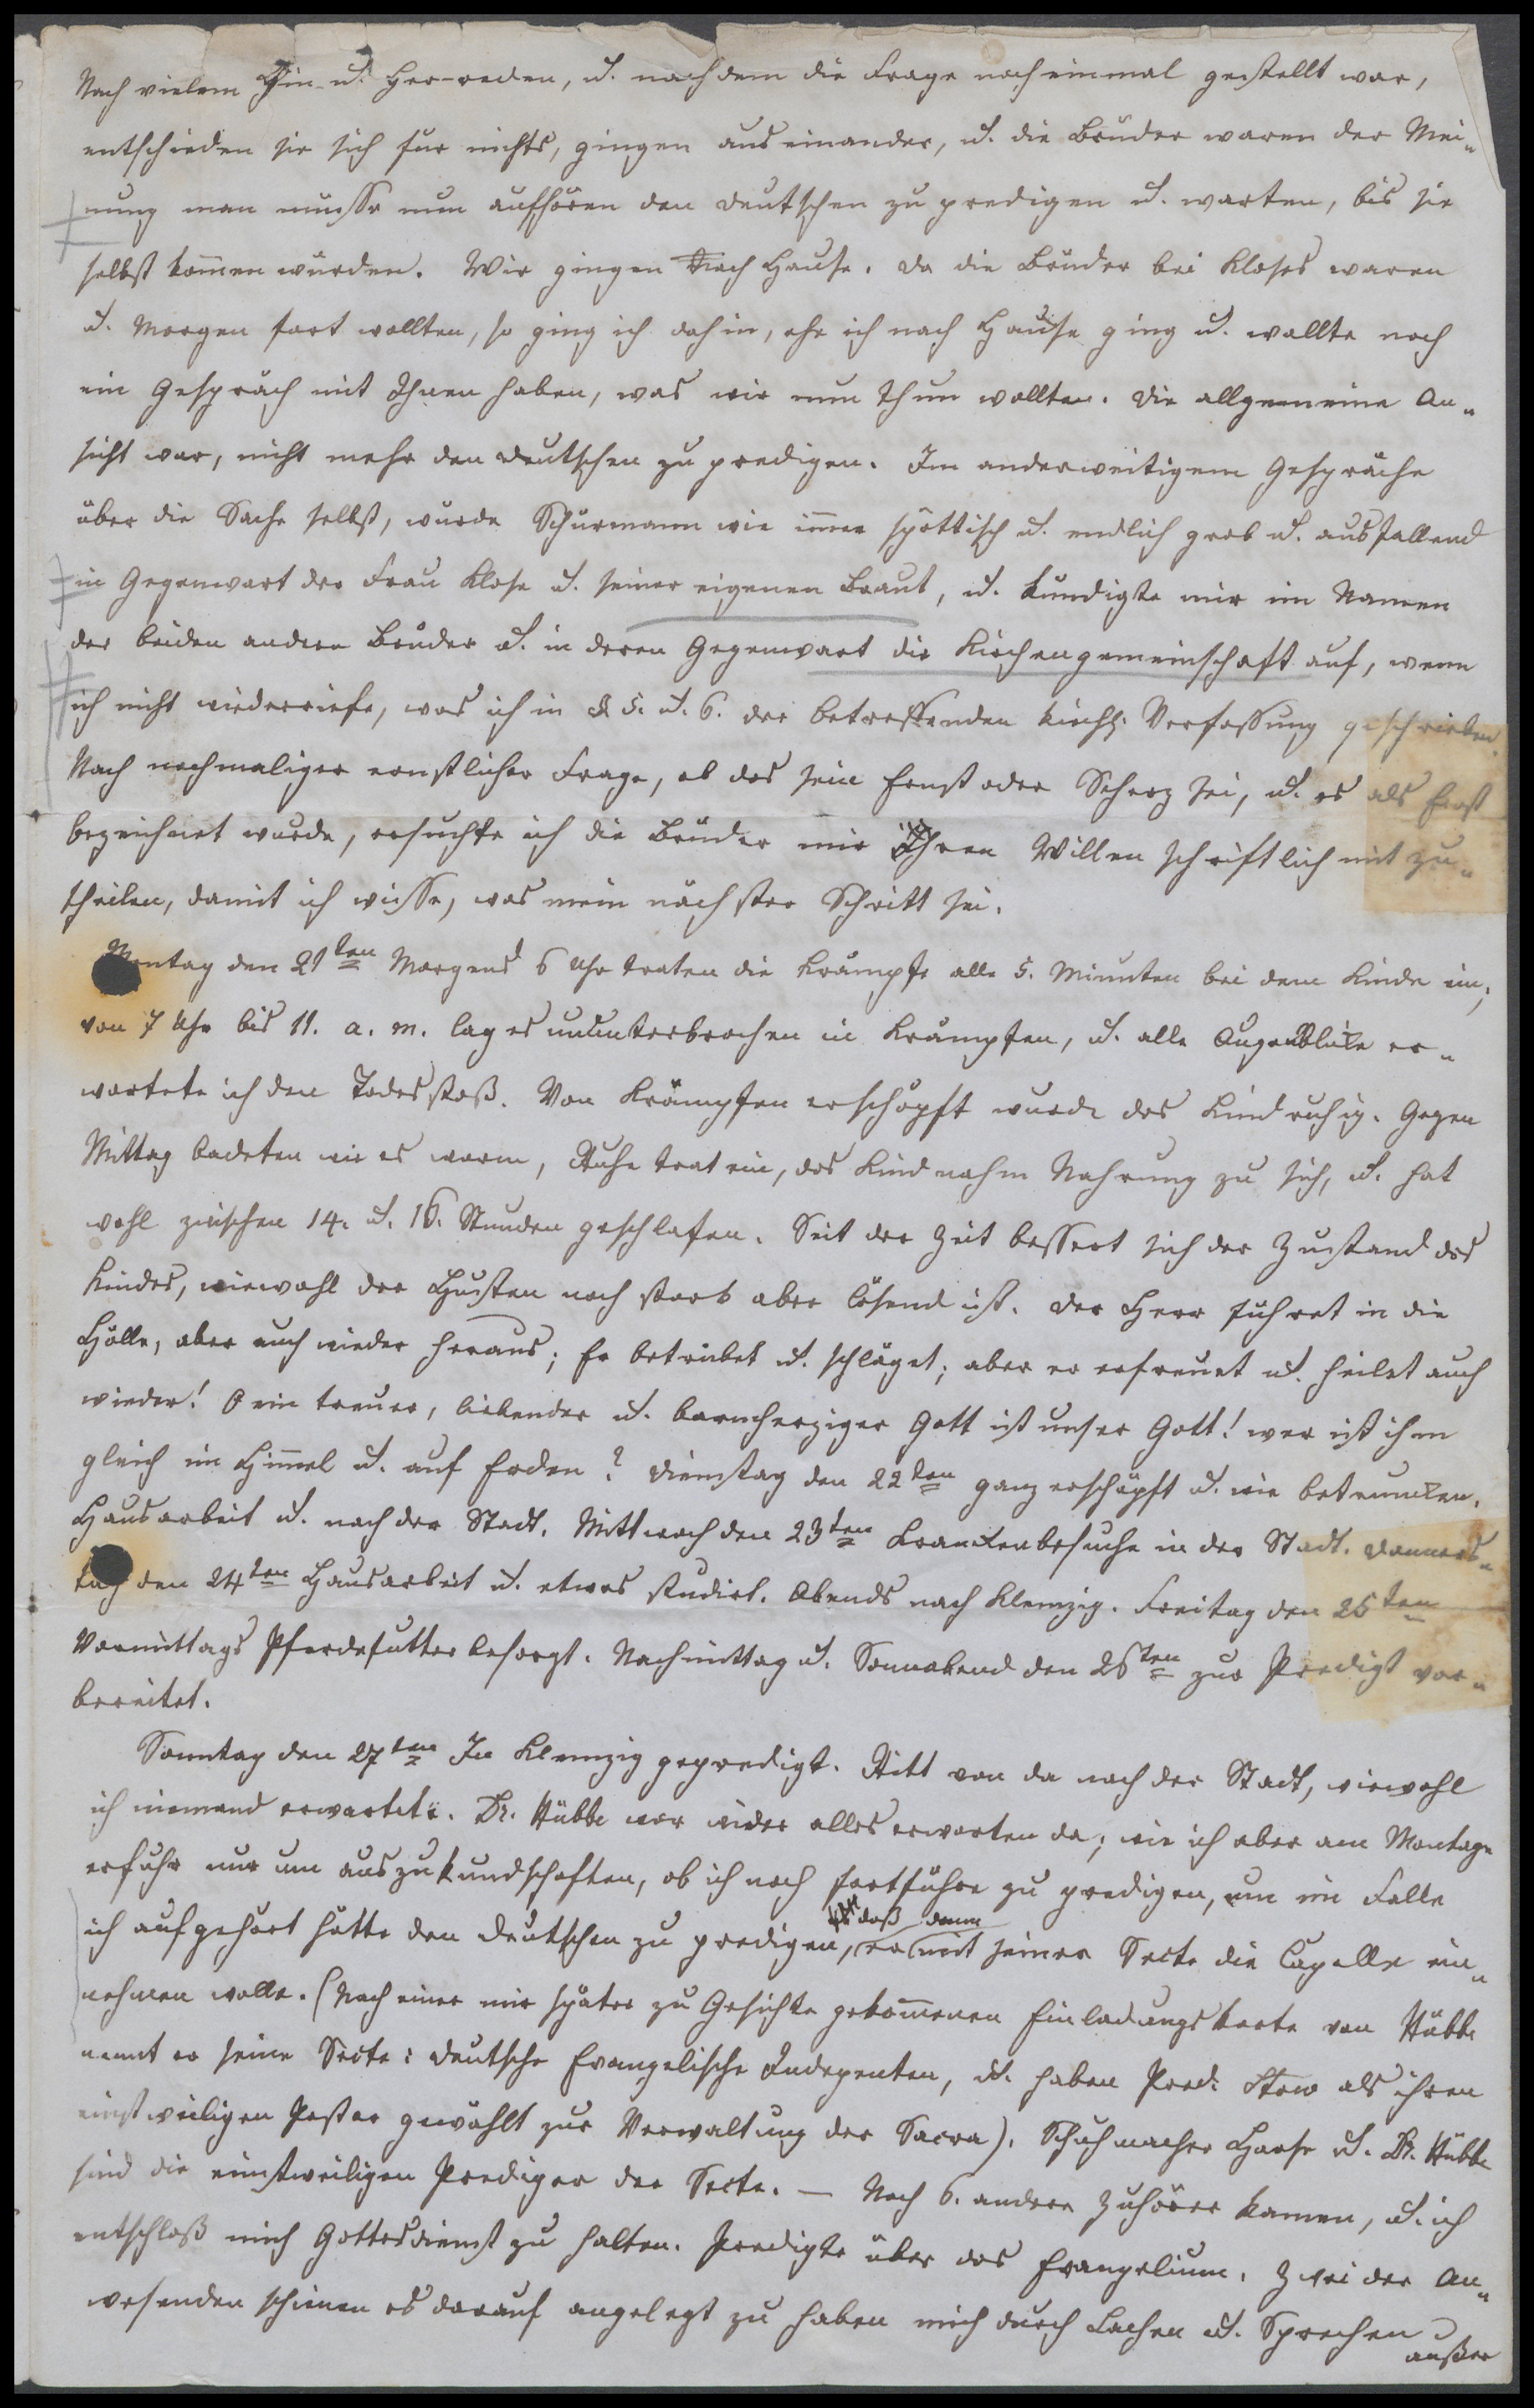 Nach vielem Hin- u. Her-reden, u. nachdem die Frage noch einmal gestellt war,
entschieden sie sich für nichts, gingen aus einander, u. die Brüder waren der Mei-
nung man müsse nun aufhören den Deutschen zu predigen u. warten, bis sie
selbst kom̄en würden. Wir gingen Nach Hause. Da die Brüder bei Kloses waren
u. Morgen fort wollten, so ging ich dahin, ehe ich nach Hause ging u. wollte noch
ein Gespräch mit Ihnen haben, was wir nun thun wollten. Die allgemeine An-
sicht war, nicht mehr den Deutschen zu predigen. Im anderweitigem Gespräche
über die Sache selbst, wurde Schürmann wie im̄er spöttisch u. endlich grob u. ausfallend
in Gegenwart der Frau Klose u. seiner eigenen Braut, u. kündigte mir im Namen
der beiden andern Brüder u. in deren Gegenwart die Kirchengemeinschaft auf, wenn
ich nicht wiederriefe, was ich in § 5. u. 6. der betreffenden kirchl. Verfassung geschrieben.
Nach nochmaliger ernstlicher Frage, ob das sein Ernst oder Scherz sei, u. es als Ernst
bezeichnet wurde, ersuchte ich die Brüder mir Ihren Willen schriftlich mit zu-
theilen, damit ich wisse, was mein nächster Schritt sei.
Montag den 21ten Morgens 6 Uhr traten die Krämpfe alle 5. Minuten bei dem Kinde ein;
von 7 Uhr bis 11. a. m. lag es ununterbrochen in Krämpfen, u. alle Augenblicke er-
wartete ich den Todesstoß. Von Krämpfen erschöpft wurde das Kind ruhig. Gegen
Mittag badeten wir es warm, Ruhe trat ein, das Kind nahm Nahrung zu sich, u. hat
wohl zwischen 14. u. 16. Stunden geschlafen. Seit der Zeit bessert sich der Zustand des
Kindes, wiewohl der Husten noch stark aber lösend ist. Der Herr führet in die
Hölle, aber auch wieder heraus; Er betrübet u. schläget; aber er erfreuet u. heilet auch
wieder! O ein treuer, liebender u. barmherziger Gott ist unser Gott! wer ist ihm
gleich im Him̄el u. auf Erden? Dienstag den 22ten ganz erschöpft u. wie betruncken.
Hausarbeit u. nach der Stadt. Mittwoch den 23ten Kranckenbesuche in der Stadt. Donners-
tag den 24ten Hausarbeit u. etwas studirt. Abends nach Klemzig. Freitag den 25ten
Vormittags Pferdefutter besorgt. Nachmittag u. Sonnabend den 26ten zur Predigt vor-
bereitet.
Sonntag den 27ten In Klemzig gepredigt. Ritt von da nach der Stadt, wiewohl
ich niemand erwartete. Dr. Hübbe war wider alles erwarten da; wie ich aber am Montage
erfuhr nur um auszukundschaften, ob ich noch fortführe zu predigen, um im Falle
daß dann
ich aufgehört hätte den Deutschen zu predigen, er mit seiner Secte die Capelle ein-
nehmen wolle. (Nach einer mir später zu Gesichte gekom̄enen Einladungskarte von Hübbe
nennt er seine Secte: Deutsche Evangelische Indepenten, u. haben Pred: Stow als ihren
einstweiligen Pastor gewählt zur Verwaltung der Sacra). Schuhmacher Haase u. Dr. Hübbe
sind die einstweiligen Prediger der Secte. — Noch 6. andere Zuhörer kamen, u. ich
entschloß mich Gottesdienst zu halten. Predigte über das Evangelium. Zwei der An-
wesenden schienen es darauf angelegt zu haben mich durch Lachen u. Sprechen
außer